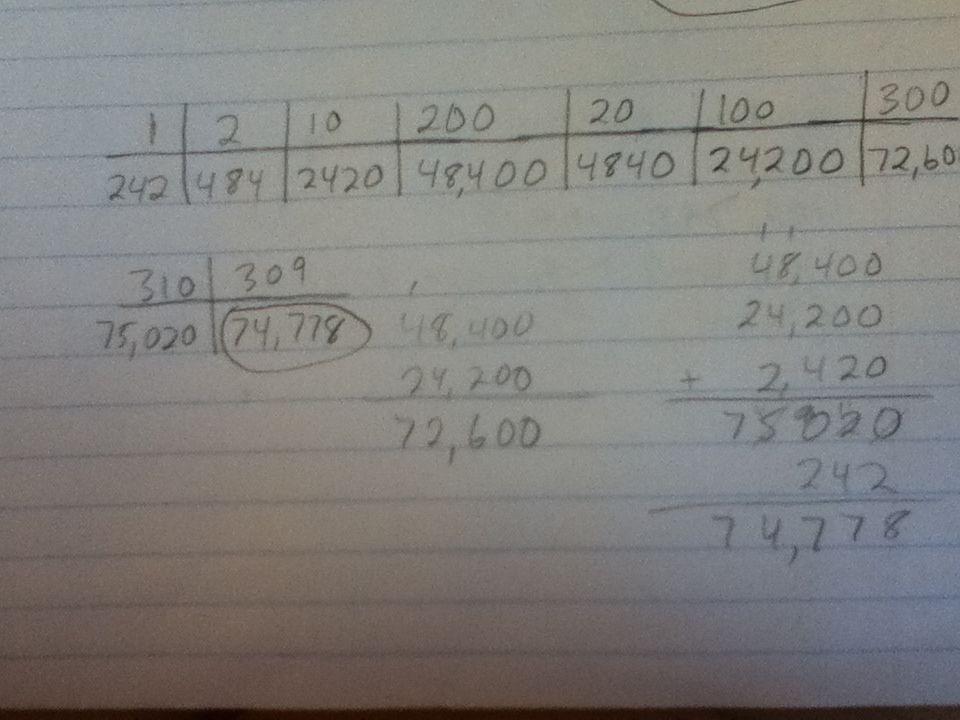 1 2 10 200 20 100 300
242 484 2420 48,400 4840 24,200 72,60
310 309
75,020 74,778
48,400
24,200
72,600
48,400
24,200
+ 2,420
75020
242
74,778